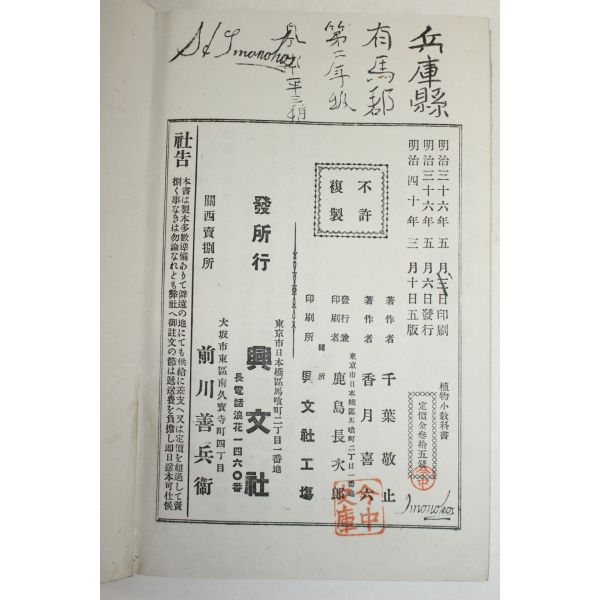 兵庫縣
有馬郡
第二年級
Imonohos
明治三十六年五月三日印刷
明治三十六年五月六日發行
明治四十年三月十日五版
植物小教科書
定價金參拾五錢
Imonohos
不許
複製
著作者 千葉敬止
著作者 香月喜六
東京市日本橋區馬喰町二丁目一番地
發行兼
印刷者 鹿島長次郎
同所
印刷所 興文社工場
今中
文庫
東京市日本橋區馬喰町二丁目一番地
發所行 興文社
長電話浪花一四六〇番
大坂市東區南久寳寺町四丁目
關西賣捌所 前川善兵衞
社告
本書は製本多數準備ありて僻遠の地にても供給に差支へ又は定價を超過して賣
捌く事なきは勿論なれども弊社へ御註文の節は遞送費を負擔し即日送本可仕候